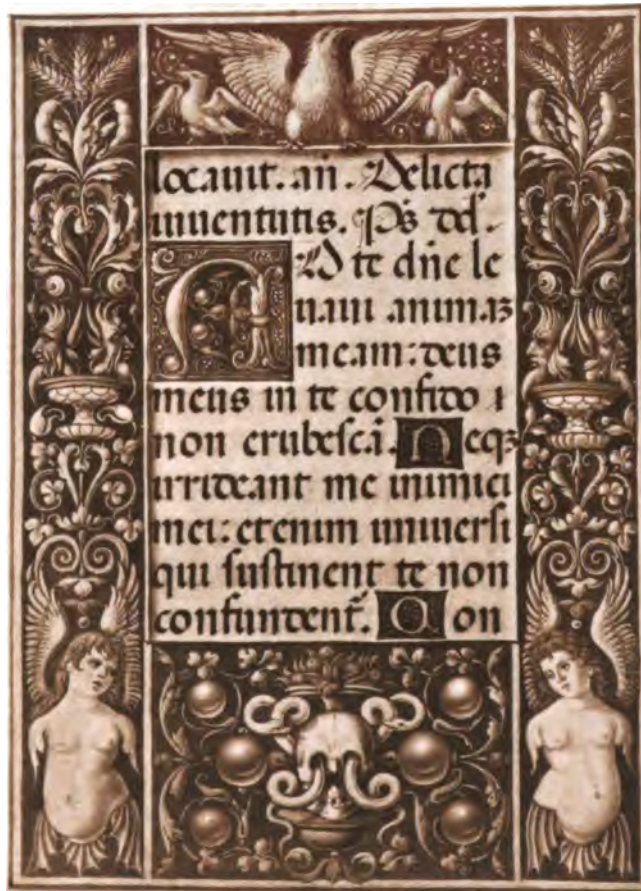 locauit. an̄. Delicta
iuuentutis. Ps̄ del̄.
AD te dn̄e le
uaui animaʒ
meam: deus
meus in te confido ı
non erubescā. Neqʒ
irrideant me inimici
mei: etenim uniuersi
qui sustinent te non
confundent᷑. Con